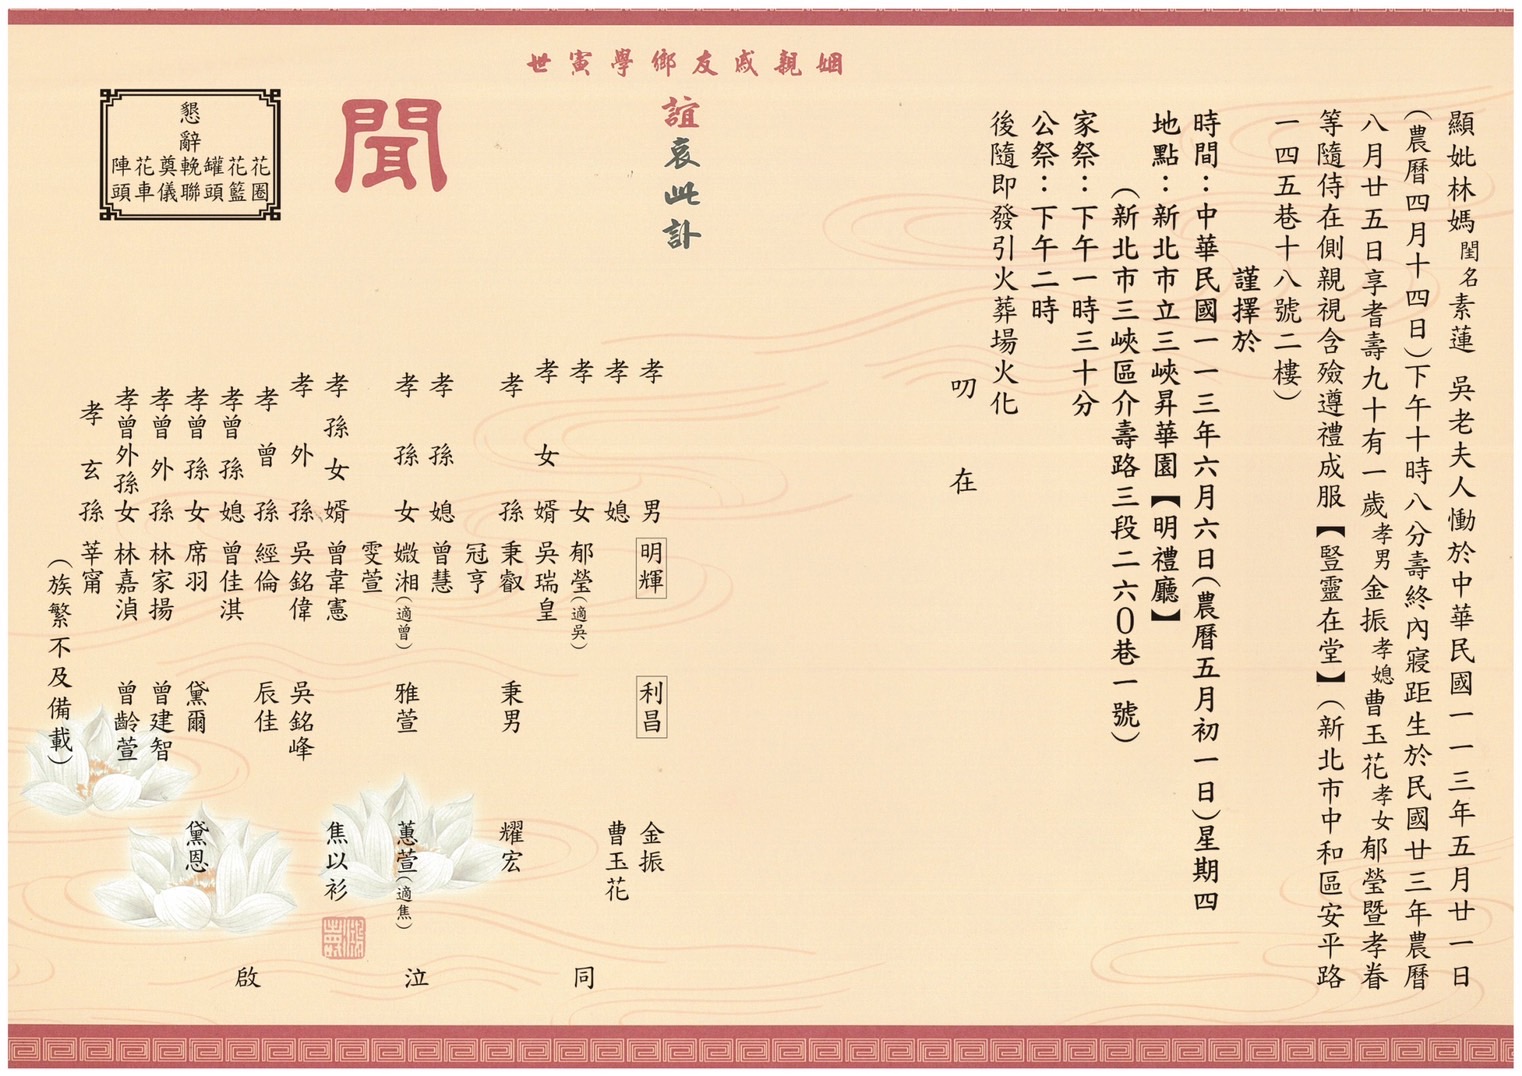 顯妣林媽閨名素蓮 吳老夫人慟於中華民國一一三年五月廿一日
(農曆四月十四日)下午十時八分壽終內寢距生於民國廿三年農曆
八月廿五日享耆壽九十有一歲孝男金振孝媳曹玉花孝女郁瑩暨孝眷
等隨侍在側親視含殮遵禮成服【豎靈在堂】(新北市中和區安平路
一四五巷十八號二樓)
謹擇於
時間:中華民國一一三年六月六日(農曆五月初一日)星期四
地點:新北市立三峽昇華園【明禮廳】
(新北市三峽區介壽路三段二六0巷一號)
家祭:下午一時三十分
公祭:下午二時
後隨即發引火葬場火化
叨 在
姻親戚友鄉學寅世
誼哀此訃
聞
懇辭
花圈
花籃
罐頭
輓聯
奠儀
花車
陣頭
孝男 明輝 利昌 金振
孝媳 曹玉花
孝女 郁瑩(適吳)
孝女婿 吳瑞皇
孝孫 秉叡 秉男 耀宏
冠亨
孝孫媳 曾慧
孝孫女 媺湘(適曾) 雅萱 蕙萱(適焦)
雯萱
孝孫女婿 曾韋憲 焦以衫
孝外孫 吳銘偉 吳銘峰
孝曾孫 經倫 辰佳
孝曾孫媳 曾佳淇
孝曾孫女 席羽 黛爾 黛恩
孝曾外孫 林家揚 曾建智
孝曾外孫女 林嘉湞 曾齡萱
孝玄孫 莘甯
(族繁不及備載)
同 泣 啟